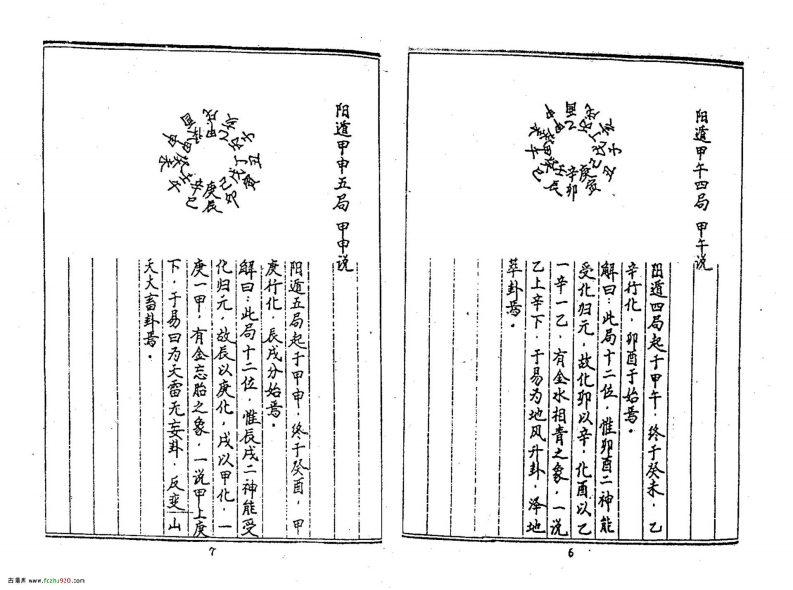 阳遁甲午四局 甲午说
阳遁四局起于甲午．终于癸未．乙
辛行化．卯酉于始焉．
解曰：此局十二位．惟卯酉二神能
受化归元．故化卯以辛．化酉以乙
一辛一乙．有金水相青之象．一说
乙上辛下．于易为地风升卦．泽地
萃卦焉．
6
阳遁甲申五局 甲申说
阳遁五局起于甲申．终于癸酉．甲
庚行化．辰戌分始焉．
解曰：此局十二位．惟辰戌二神能受
化归元．故辰以庚化．戌以甲化．一
庚一甲．有金忘胎之象．一说甲上庚
下．于易曰为天雷无妄卦．反变山
天大畜卦焉．
7
古籍库 www.fczhu920.com